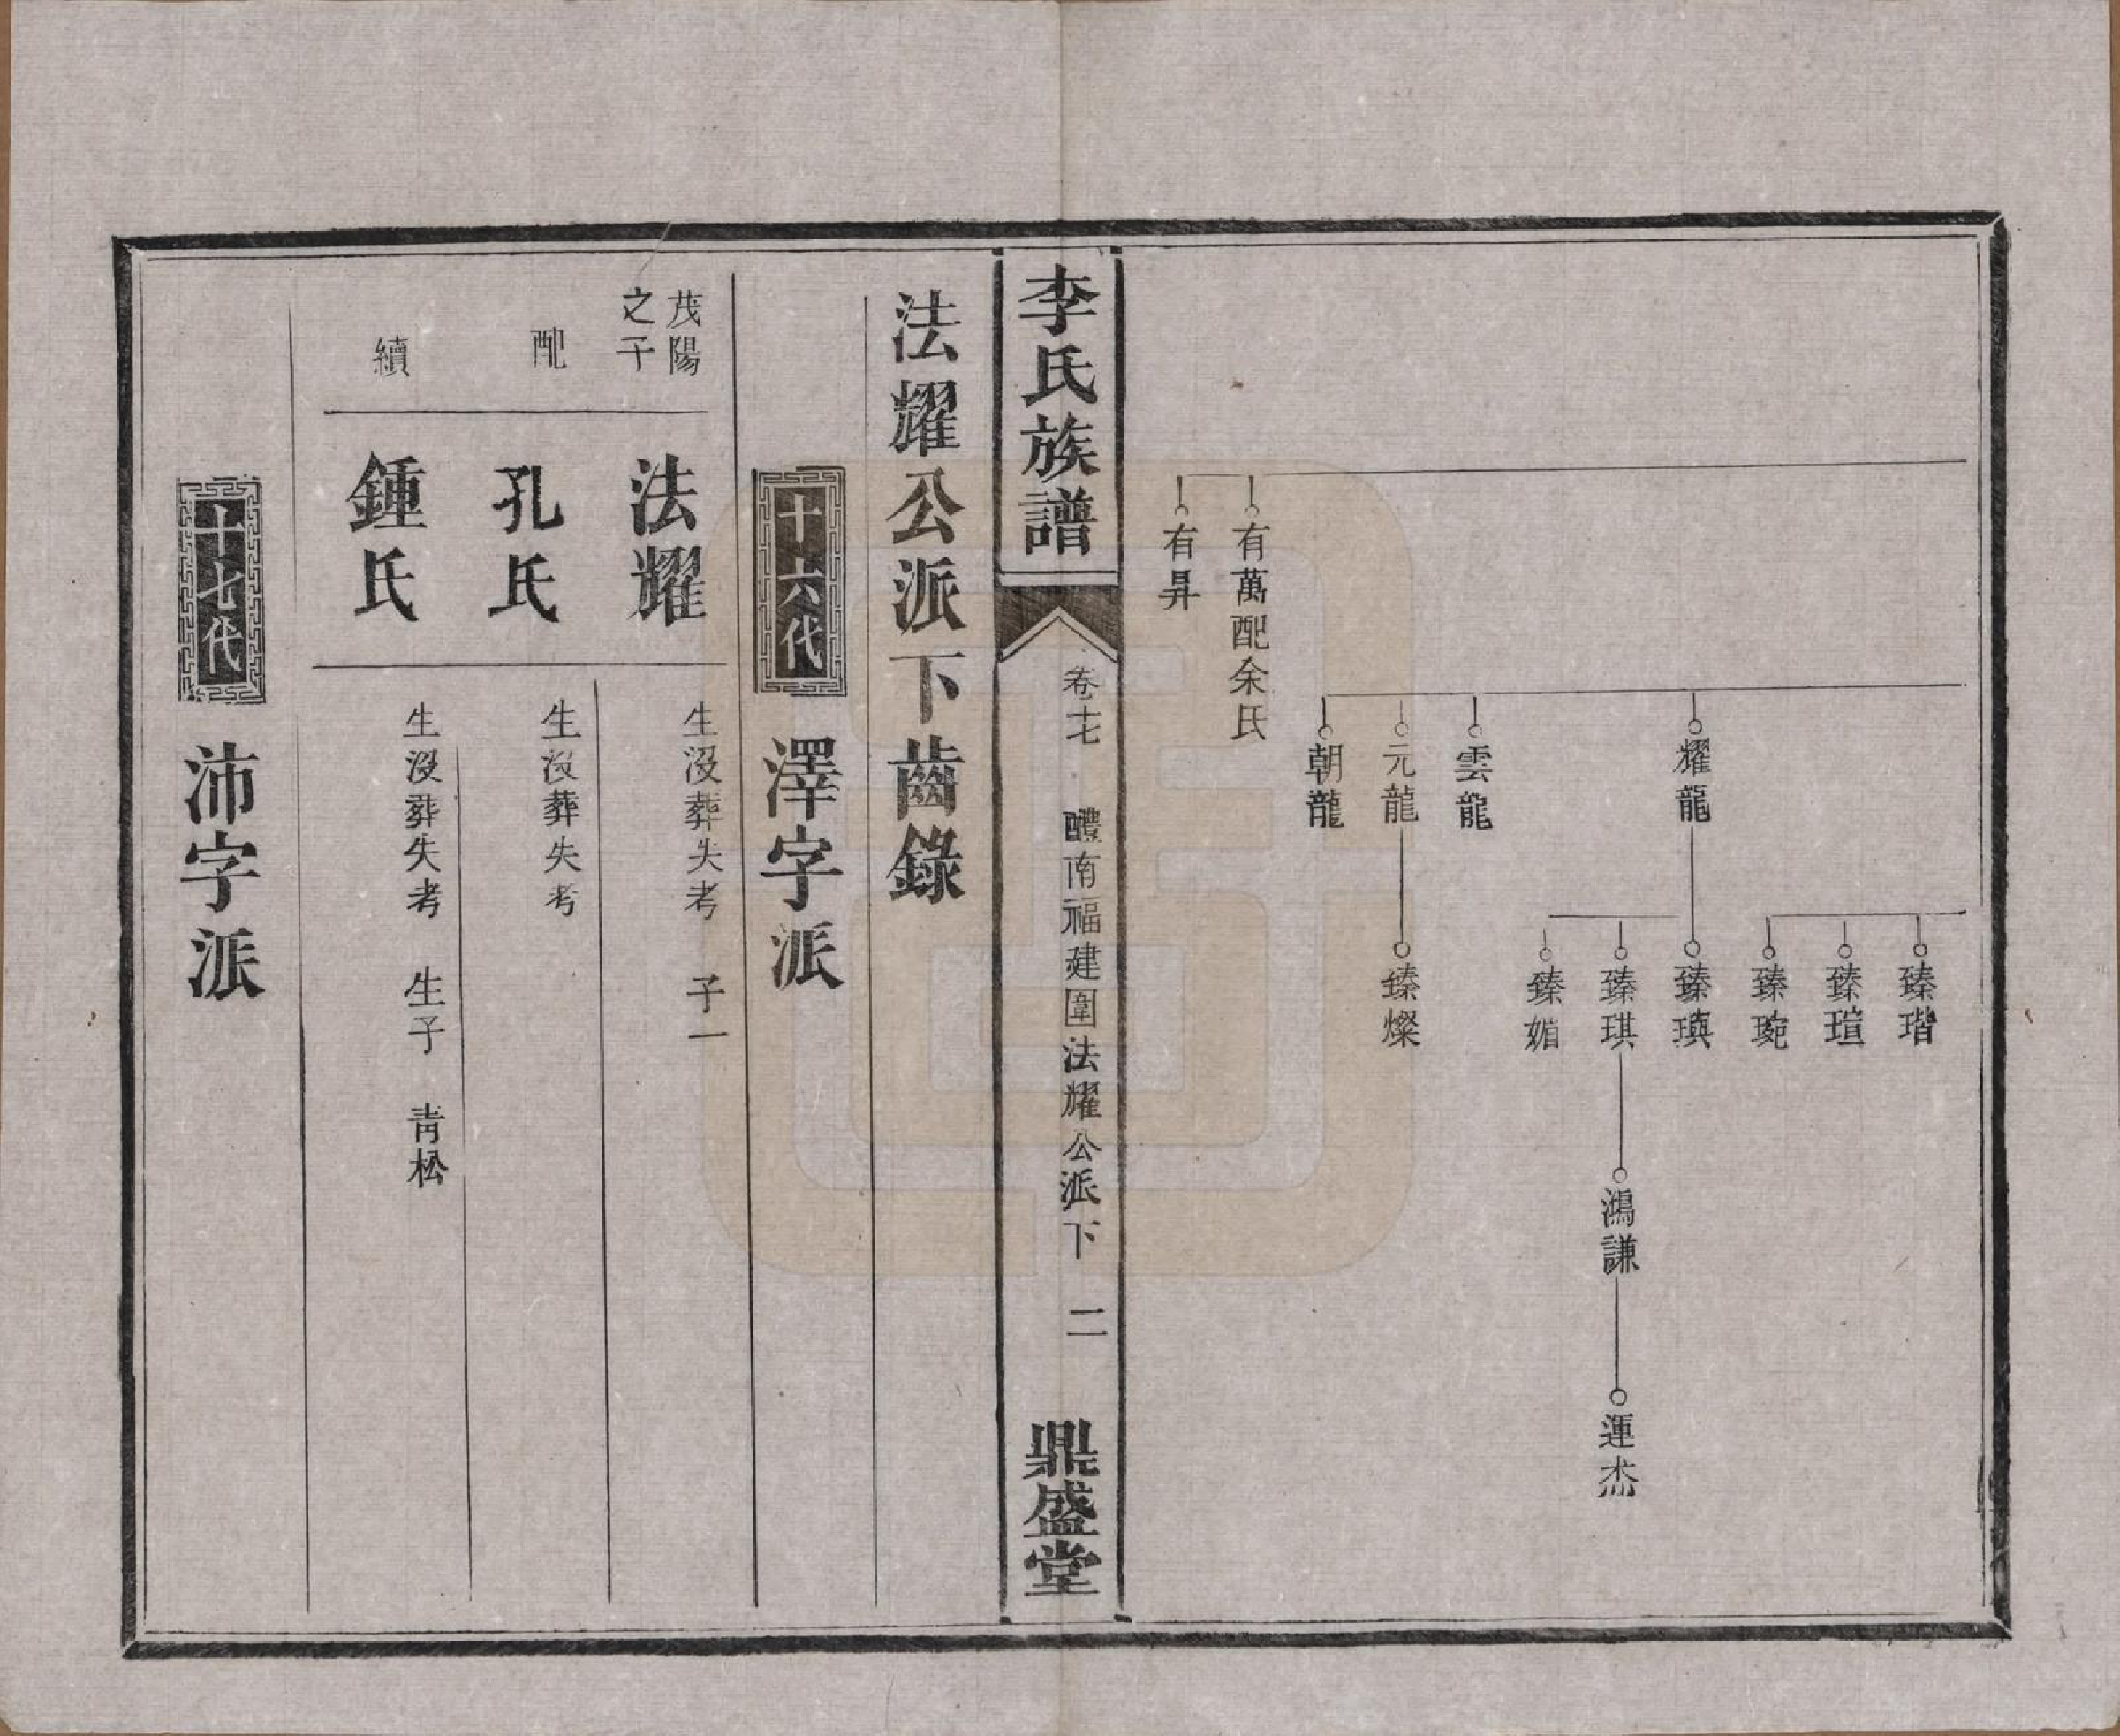 臻瑎
臻瑄
臻琬
耀龍
臻璵
臻琪
鴻謙
運杰
臻媚
雲龍
元龍
臻燦
朝龍
有萬配余氏
有昇
李氏族譜
卷十七
醴南福建圍法耀公派下
二
鼎盛堂
法耀公派下齒錄
十六代
澤字派
茂陽
之子
法耀
生沒葬失考 子一
配
孔氏
生沒葬失考
續
鍾氏
生沒葬失考 生子 青松
十七代
沛字派